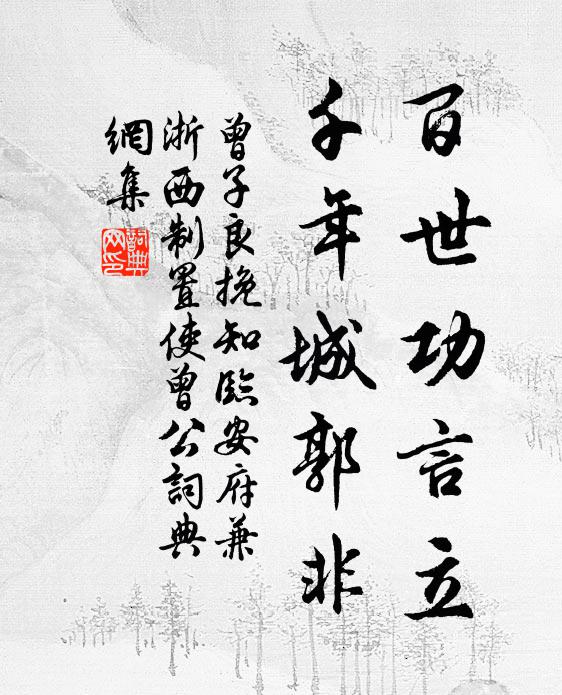 百世功言立
千年城郭非
曾子良挽知臨安府兼
浙西制置使曾公詞典
網集
詞典網印